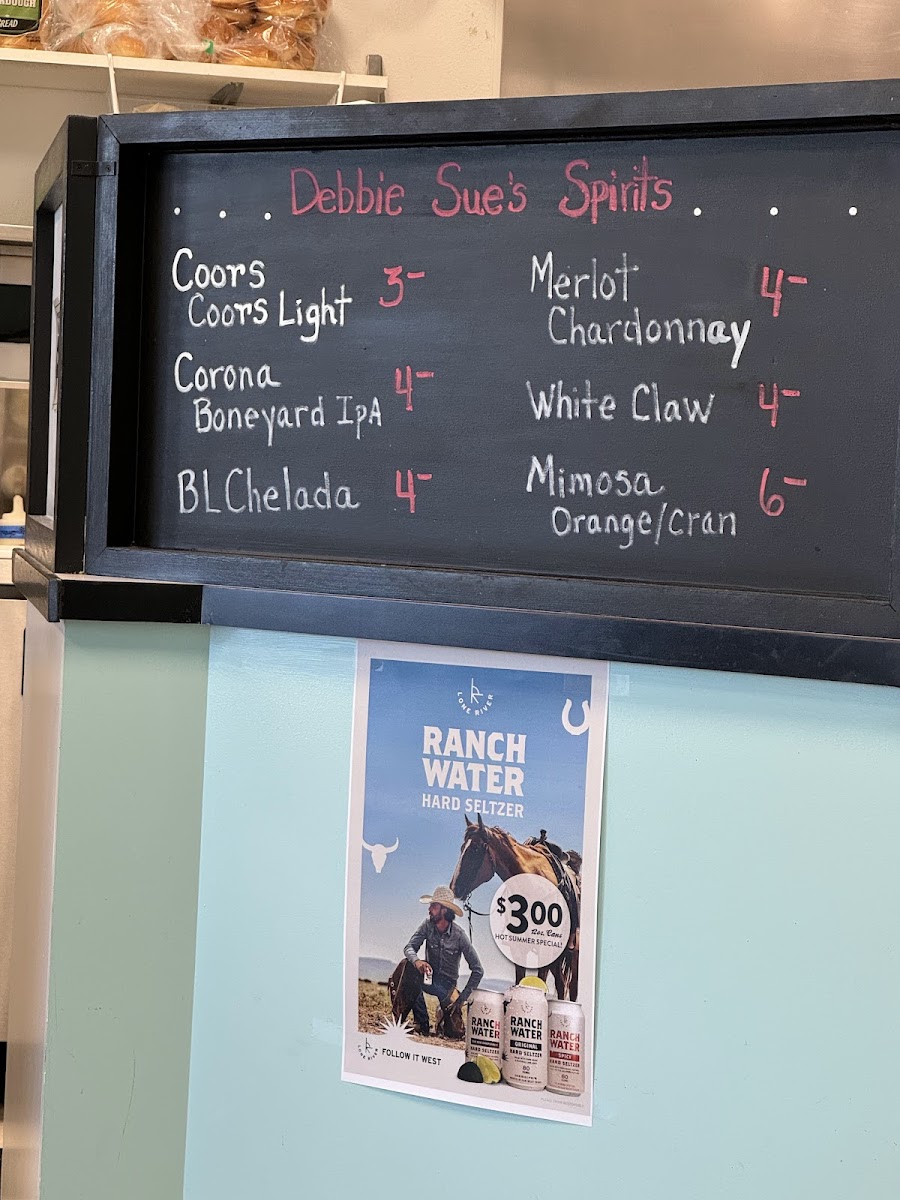 READ
. . . Debbie Sue's Spirits . . .
Coors
Coors Light 3-
Corona
Boneyard IPA 4-
BL Chelada 4-
Merlot 4-
Chardonnay
White Claw 4-
Mimosa 6-
Orange/Cran
LONE RIVER
RANCH
WATER
HARD SELTZER
$3.00
12oz. Cans
HOT SUMMER SPECIAL!
RANCH
WATER
HARD SELTZER
80
RANCH
WATER
ORIGINAL
HARD SELTZER
80
RANCH
WATER
SPICY
HARD SELTZER
80
LONE RIVER
FOLLOW IT WEST